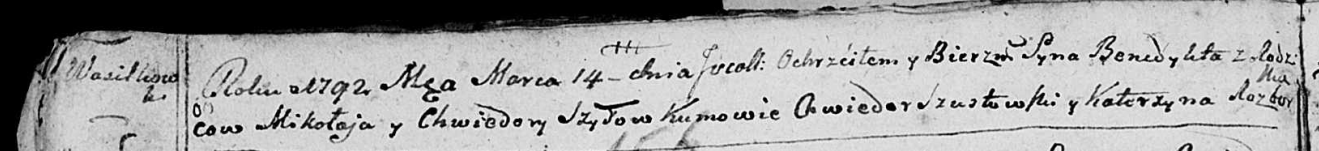 Wasilkow
ki
Roku 1792 Mca Marca 14 dnia Ochrzciłem y Bierzm Syna Benedykta z Rodzi
ców Mikołaja y Chwiedory Szyłow Kumowie Chwiedor Szustowski y Katerzyna